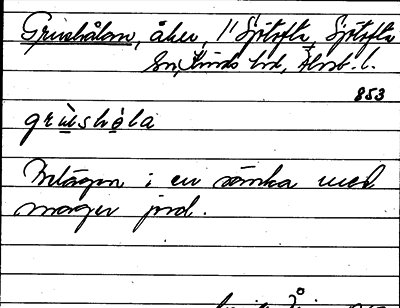 Grisahålan, åker, 1/1 Sjötofta, Sjötofta
sn, Kinds hd, Älvsb. l.
853
griishòla
Belägen i en sänka med
mager jord.